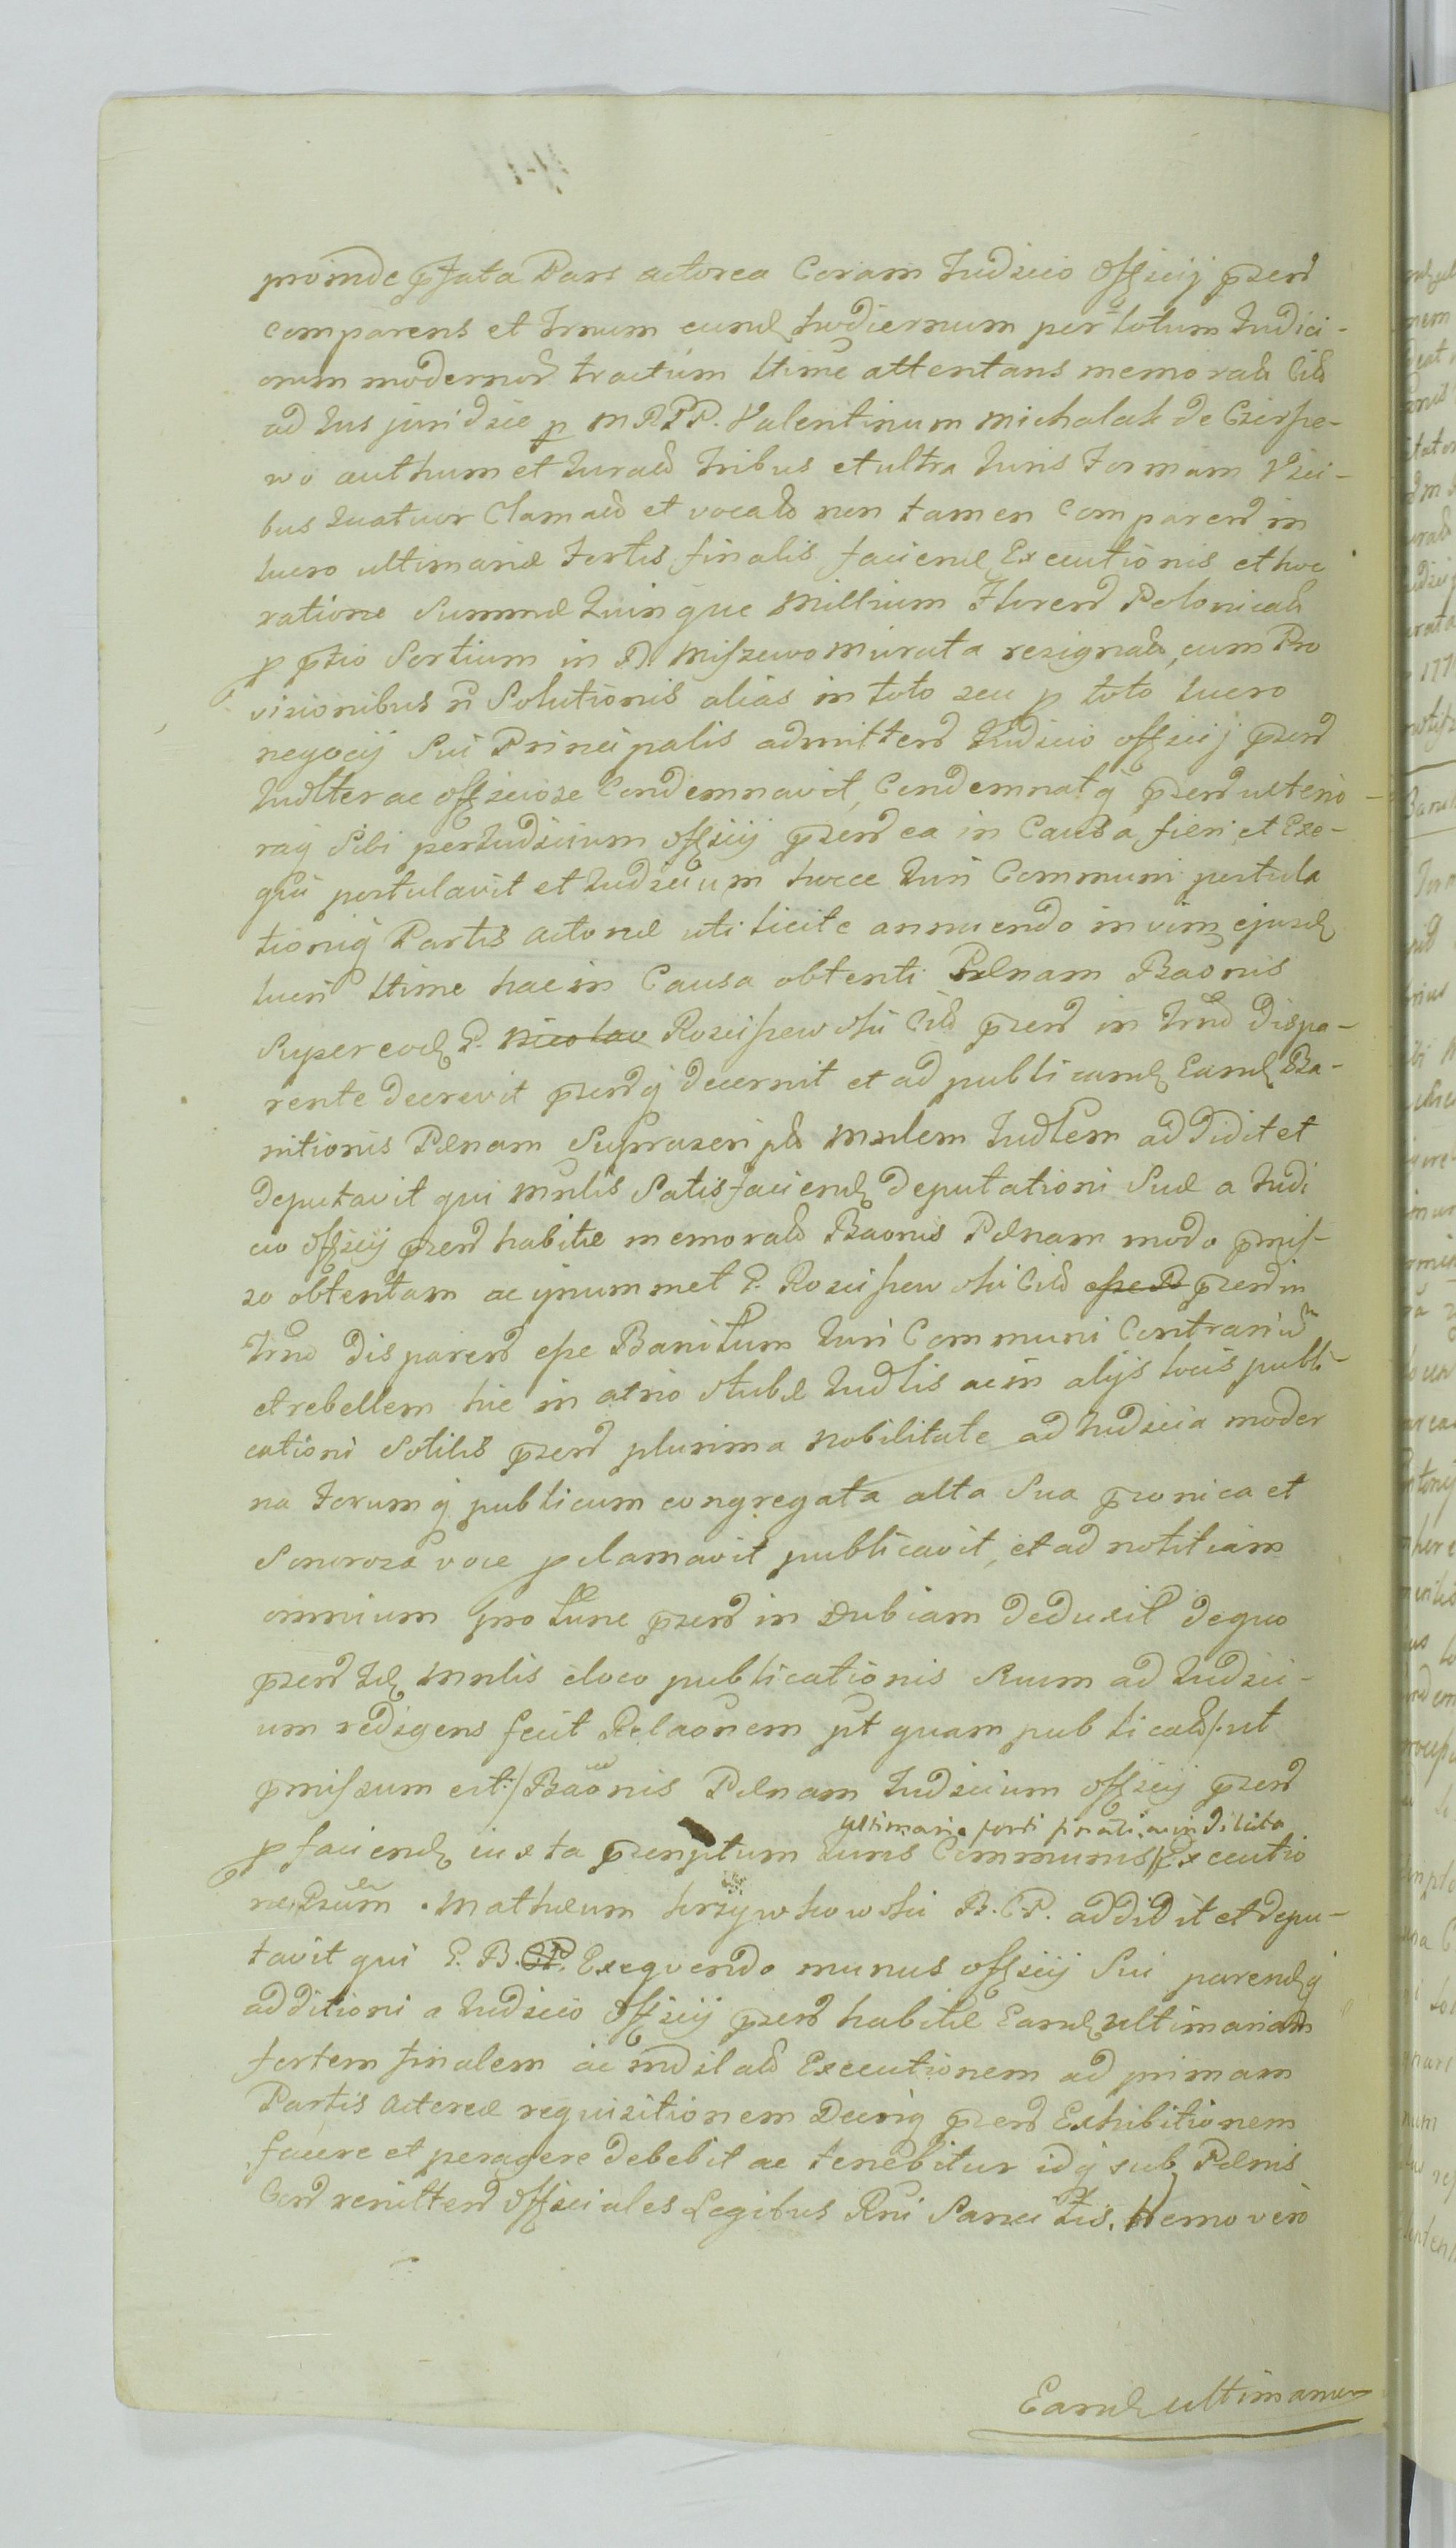 proinde pfata Pars actorea Coram Judicio Officij psend
comparens et Trnum eund hodiernum per totum Judici-
orum modernor tractum ltime attentans memorati Citti
ad Jus juridice p M RPP. Valentinum Michalak de Czerpe-
wo authum et Juratt tribus et ultra Juris Formam Vici-
bus Quatuor Clamatt et vocatt non tamen Comparend in
lucro ultimariæ Fortis finalis faciend Executionis et hoc
ratione Summæ Quinque Millium Floren Polonicali
p ptio Sortium in B. Miszewo Murata resignatt, cum Pro
visionibus ń Solutionis alias in toto seu p toto lucro
negocij Sui Principalis admittend Judicio officij psend
Judlter ac officiose Condemnavit, Condemnatq psend ulterio-
raq Sibi per Judicium officij psend ea in Causa fieri et Exe-
qui postulavit et Judicium hocce Juri Communi postula
tioniq Partis Actoreæ uti licite annuendo in vim ejusd
lucri ltime hac in Causa obtenti Pænam Baonis
Super eod P. Rosciszewski Citt psend in Trno dispa-
rente decrevit psentq decernit et ad publicand Eand Ba-
nitionis Pænam Suprascriptt Mnlem Judlem addidit et
deputavit qui Mnlis Satisfaciend deputationi Suæ a Judi
cio officij psend habitæ memoratt Baonis Pænam modo pmis-
so obtentam ac ipsummet P. Rosciszewski Citt psend in
Trno disparend esse Banitum Juri Communi Contrariũ
et rebellem hic in atrio stubæ Judlis ac in alijs locis publi-
cationi Solitis psend plurima Nobilitate ad Judicia moder
na Forumq publicum congregata alta Sua pconica et
Sonorosa voce pclamavit publicavit, et ad notitiam
omnium pro tunc psend in dubiam deduxit de quo
psend Id Mnlis e loco publicationis Suum ad Judici-
um redigens fecit Relaonem pt quam publicatt /: ut
pmissum est :/ Baonis Pænam Judicium officij psend
ultimaria forti finali ac indilata
p faciend iuxta pscriptum Juris Communis /: Executio
ne Matheum Krzywkowski B.C.P. addidit et depu-
tavit qui P. B. Exequendo munus officij Sui parendq
additioni a Judicio officij psend habitæ Eand ultimariam
fortem finalem ac indilatt Executionem ad primam
Partis Actoreæ requisitionem Decriq psend Exhibitionem
facere et peragere debebit ac tenebitur idq sub Pænis
Cont renittend officiales Legibus Rni Sancitis. Nemo vero
Eand ultimariam